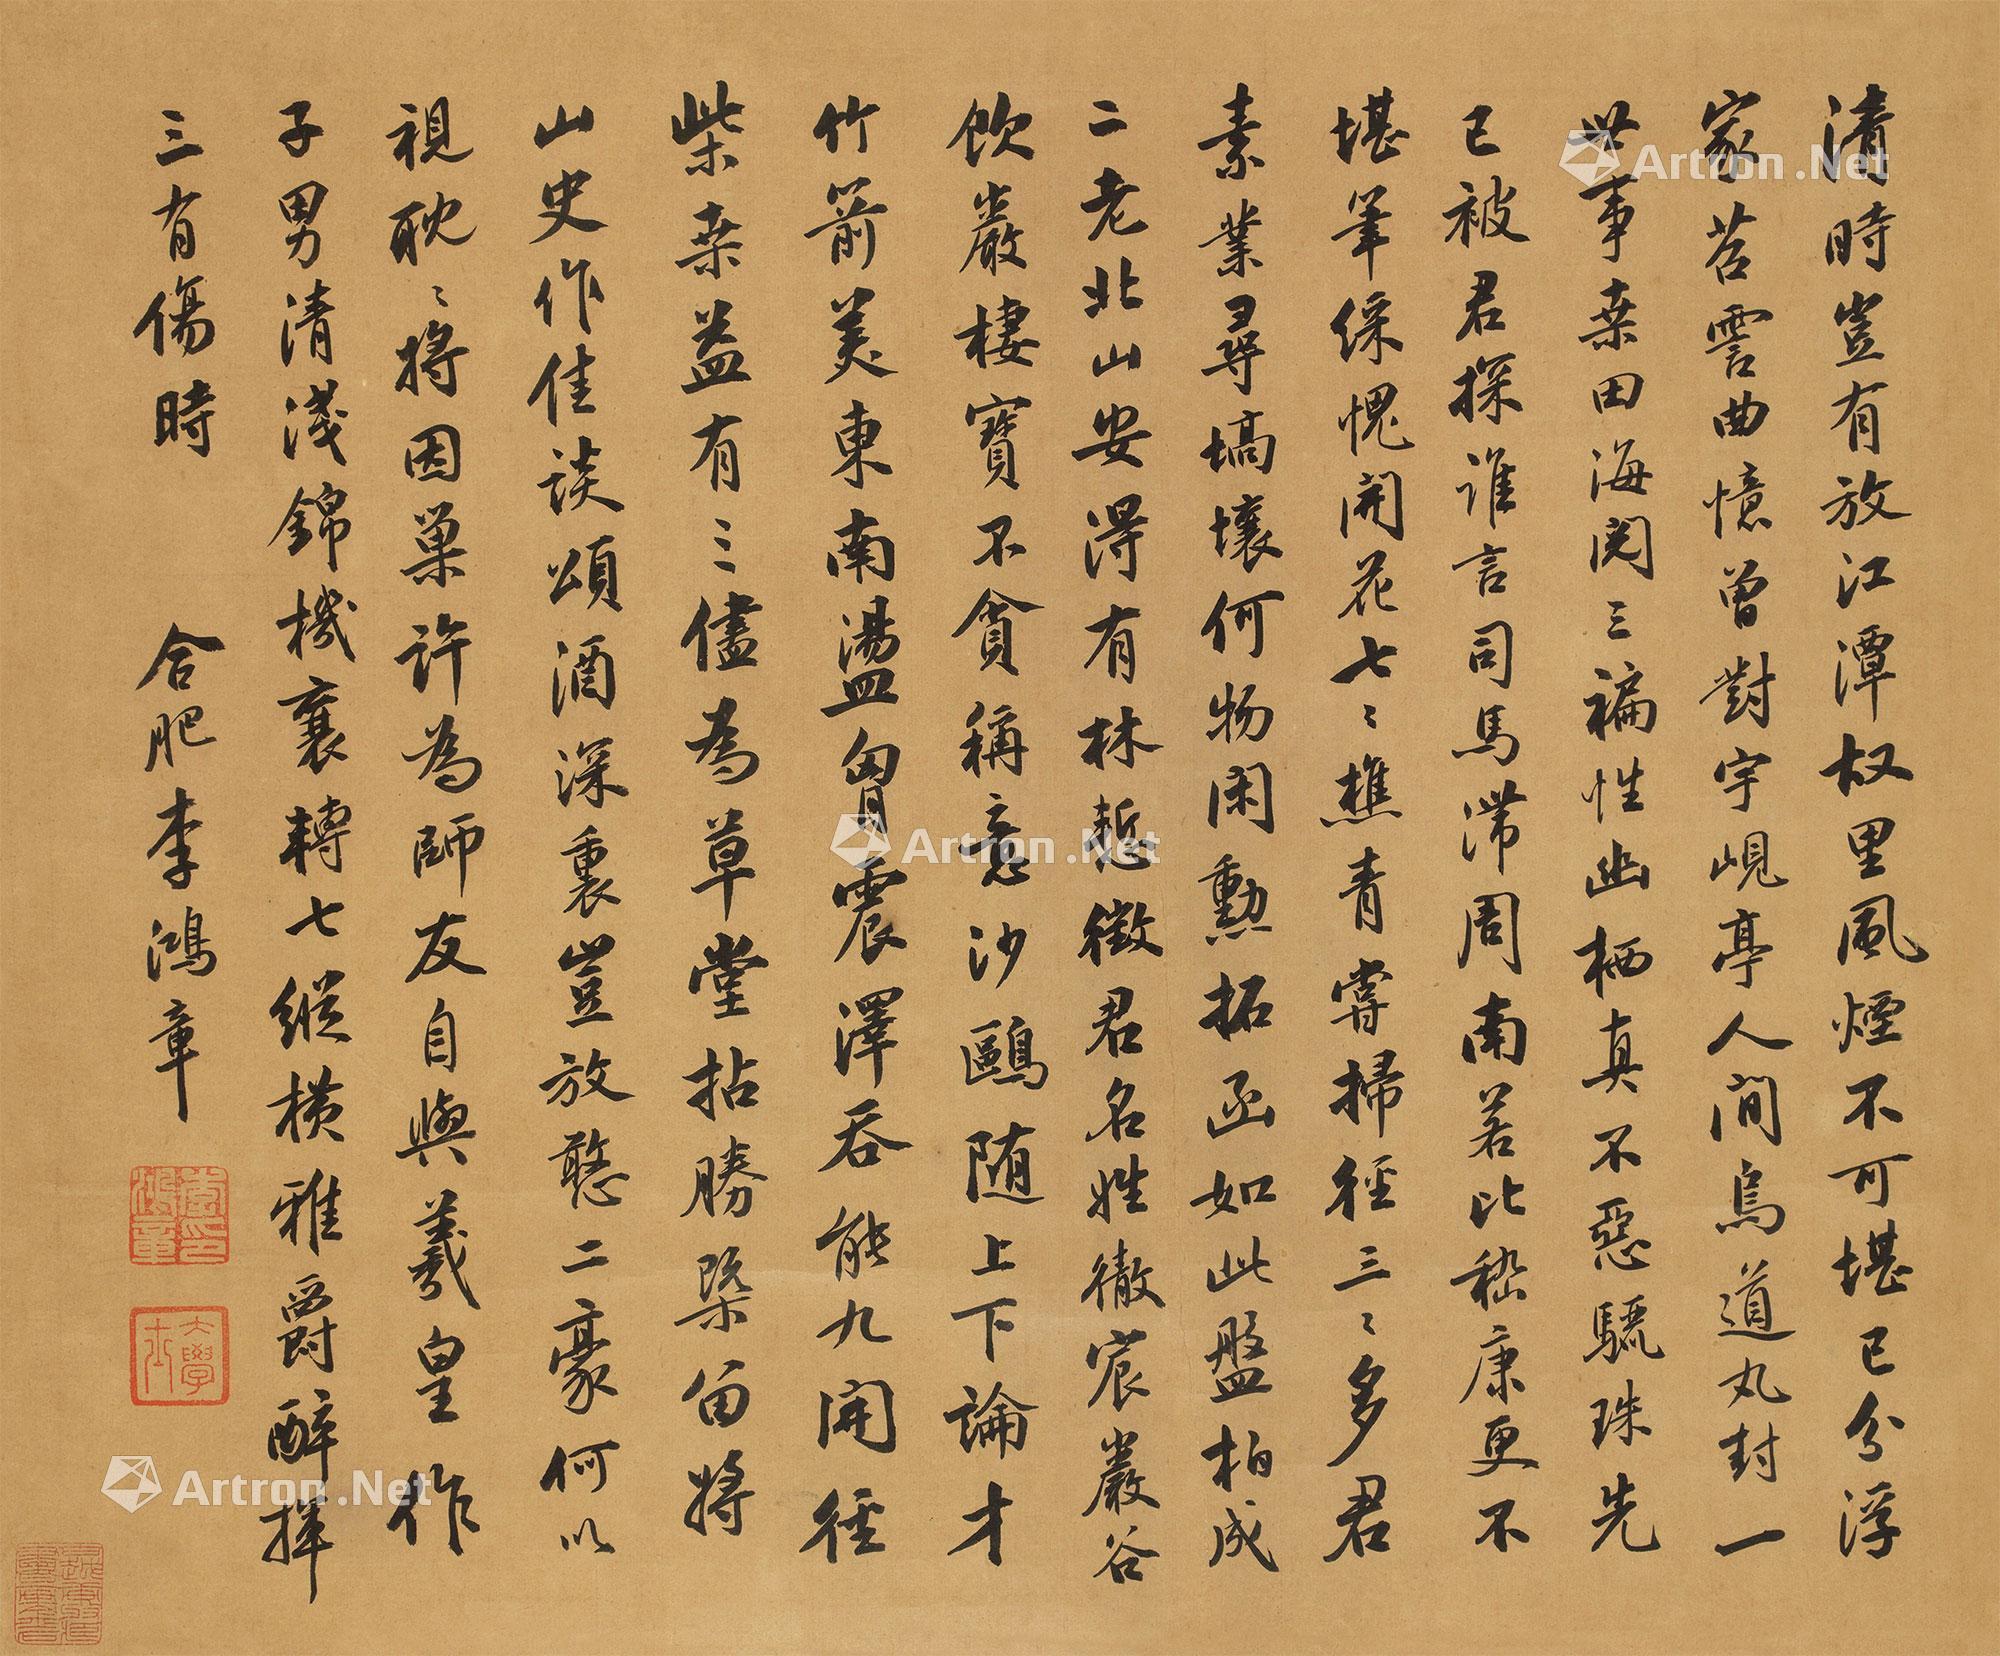 清時豈有放江潭故里風煙不可堪已分浮
家苕霅曲憶曾對宇峴亭人間烏道丸封一
世事桑田海閱三褊性幽栖真不惡驪珠先
已被君探誰言司馬滯周南若比嵇康更不
堪筆綵愧開花七〻樵青嘗掃徑三〻多君
素業尋墳壤何物閑勳拓函如此盤柏成
二老北山安得有林慙徵君名姓徹宸巖谷
飲巖棲寶不貪稱意沙鷗随上下論才
竹箭美東南湯盥胷震澤吞能九開徑
柴桑益有三儘為草堂拈勝槩留將
山史作佳談頌酒深裏豈放憨二豪何以
視耽〻將因巢許為師友自與羲皇作
子男清淺錦機襄轉七縱橫雅爵醉揮
三有傷時 合肥李鴻章
大學士
Artron.Net
Artron.Net
Artron.Net